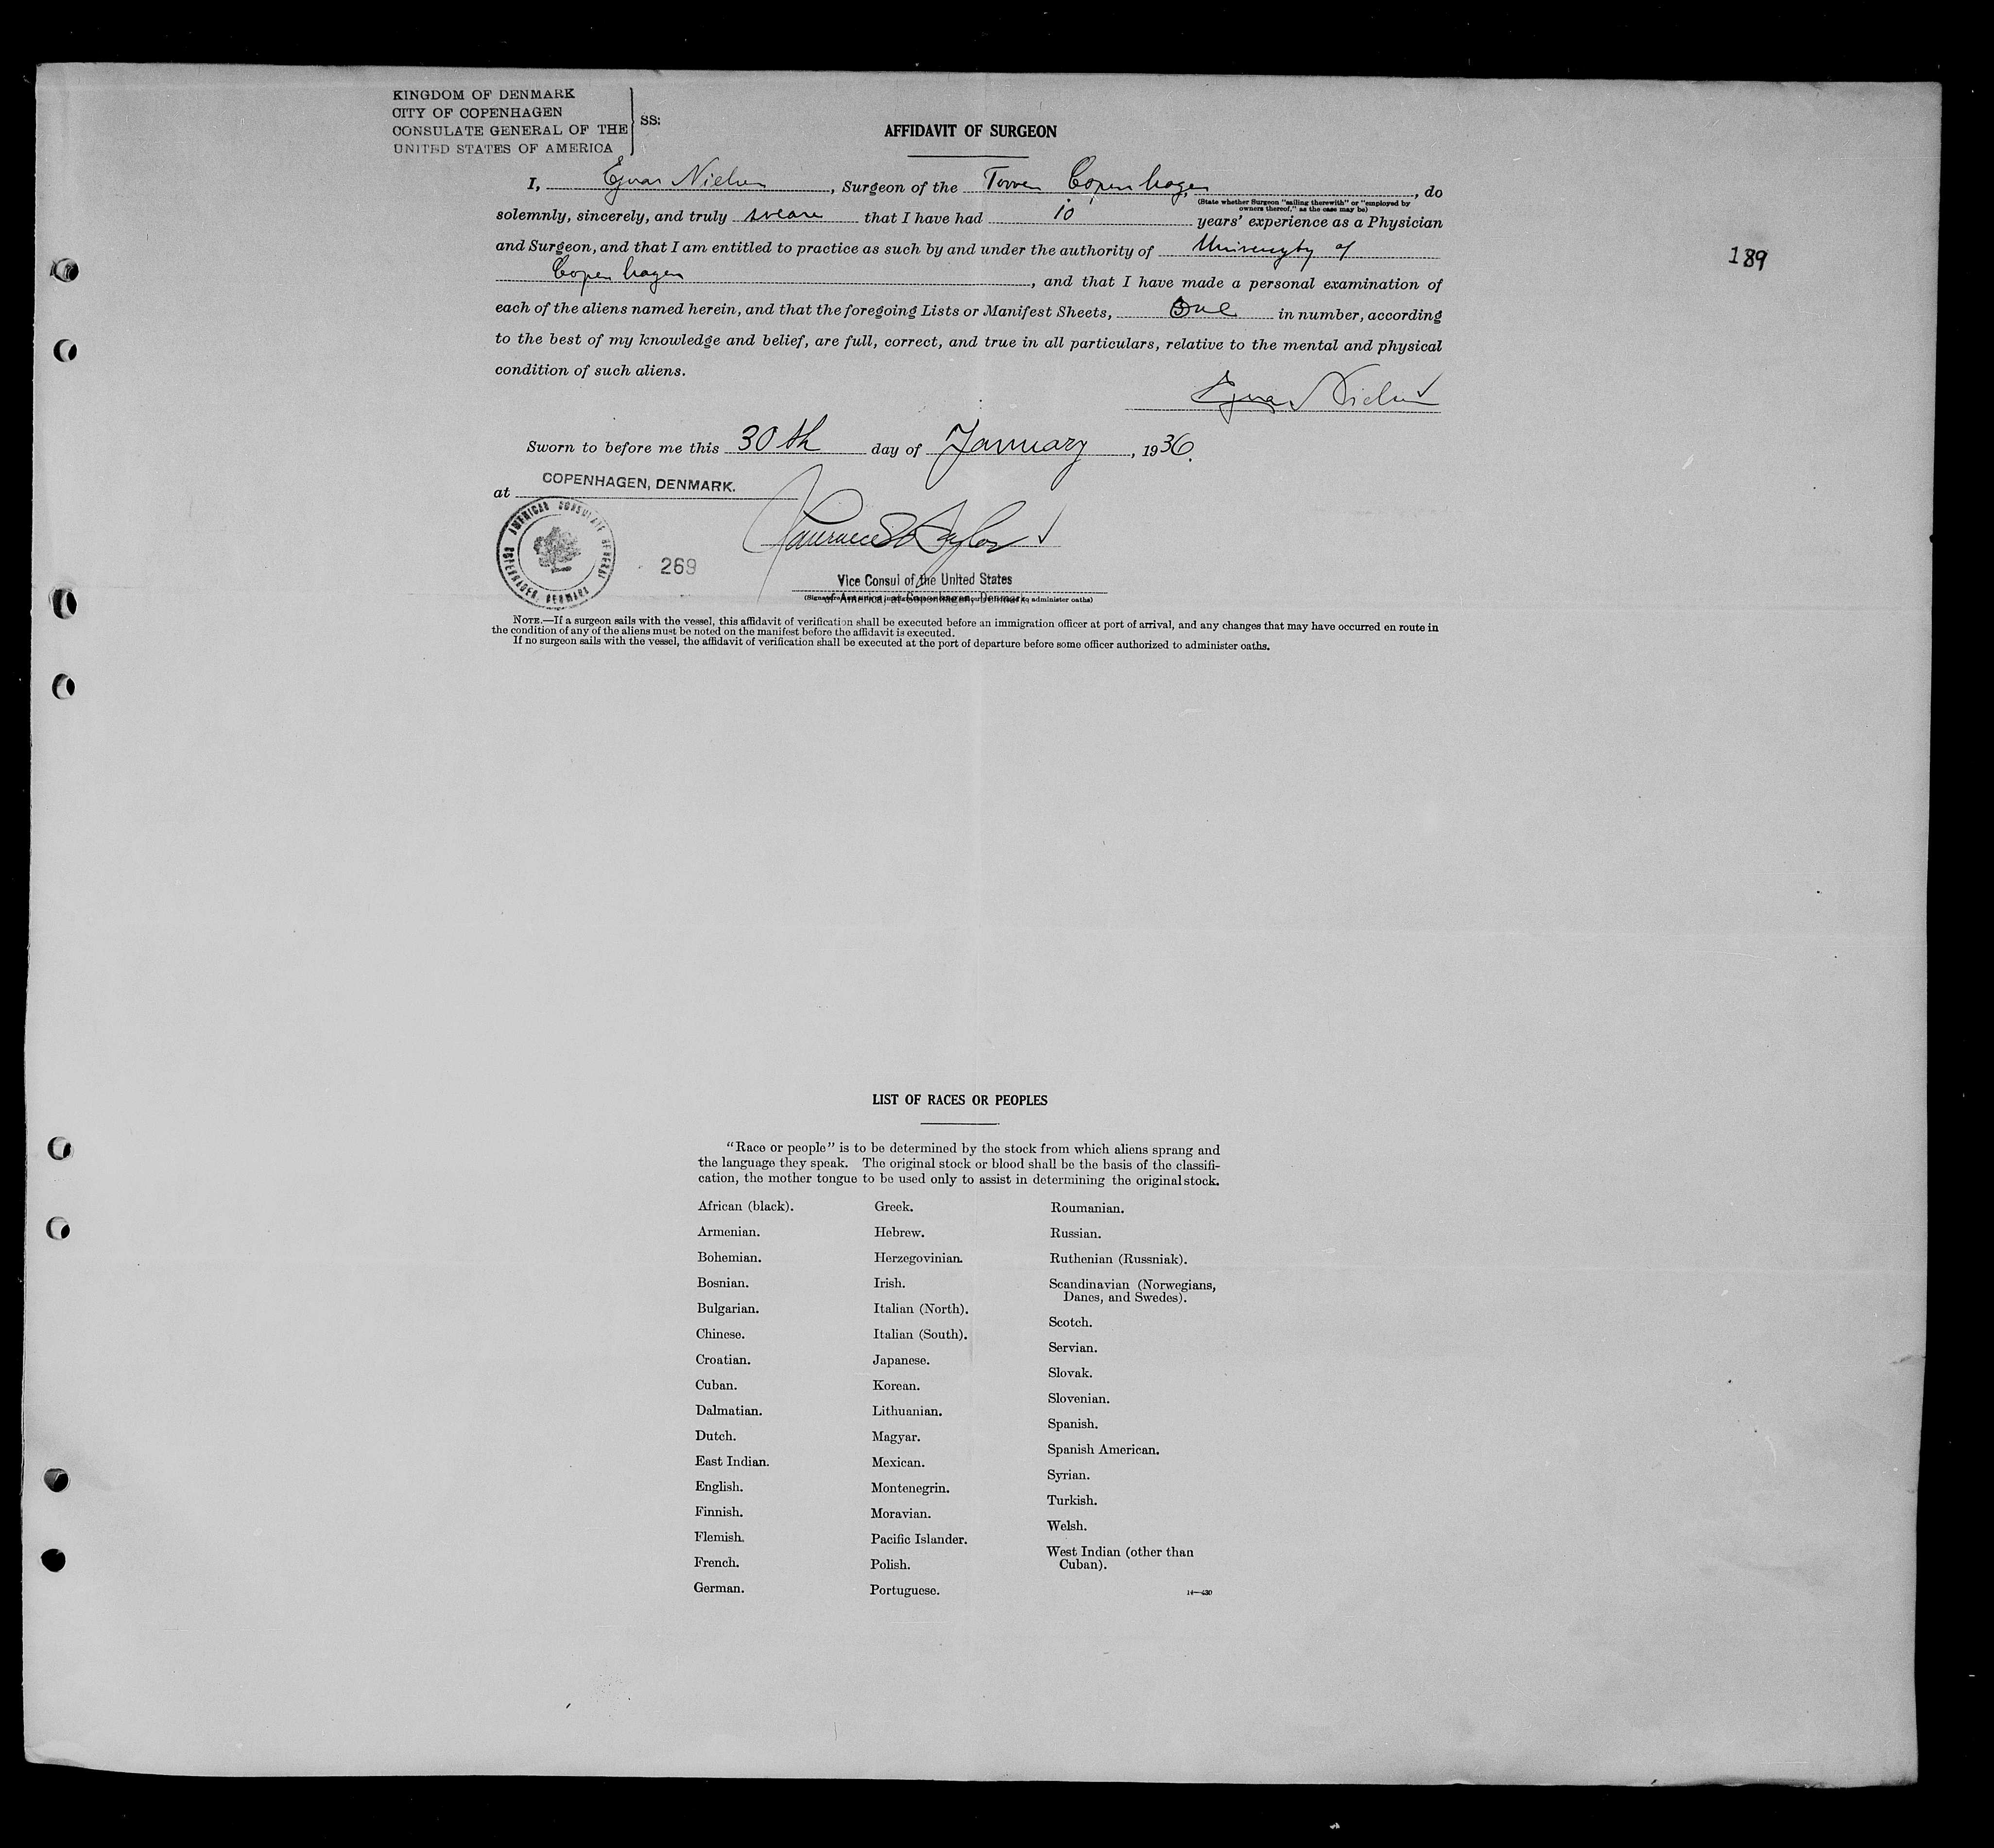 KINGDOM OF DENMARK
CITY OF COPENHAGEN
CONSULATE GENERAL OF THE
UNITED STATES OF AMERICA
SS:
AFFIDAVIT OF SURGEON
I, Ejnar Nielsen, Surgeon of the Town Copenhagen, do
(State whether Surgeon "sailing therewith" or "employed by
owners thereof," as the case may be)
solemnly, sincerely, and truly sveare that I have had 10 years' experience as a Physician
and Surgeon, and that I am entitled to practice as such by and under the authority of University of
189
Copenhagen, and that I have made a personal examination of
each of the aliens named herein, and that the foregoing Lists or Manifest Sheets, One in number, according
to the best of my knowledge and belief, are full, correct, and true in all particulars, relative to the mental and physical
condition of such aliens.
Ejnar Nielsen
Sworn to before me this 30th day of January, 1936.
at COPENHAGEN, DENMARK.
AMERICAN CONSULATE GENERAL COPENHAGEN, DENMARK
269
Vice Consul of the United States
of America, at Copenhagen, Denmark
to administer oaths)
NOTE.—If a surgeon sails with the vessel, this affidavit of verification shall be executed before an immigration officer at port of arrival, and any changes that may have occurred en route in
the condition of any of the aliens must be noted on the manifest before the affidavit is executed.
If no surgeon sails with the vessel, the affidavit of verification shall be executed at the port of departure before some officer authorized to administer oaths.
LIST OF RACES OR PEOPLES
"Race or people" is to be determined by the stock from which aliens sprang and
the language they speak. The original stock or blood shall be the basis of the classifi-
cation, the mother tongue to be used only to assist in determining the original stock.
African (black).
Armenian.
Bohemian.
Bosnian.
Bulgarian.
Chinese.
Croatian.
Cuban.
Dalmatian.
Dutch.
East Indian.
English.
Finnish.
Flemish.
French.
German.
Greek.
Hebrew.
Herzegovinian.
Irish.
Italian (North).
Italian (South).
Japanese.
Korean.
Lithuanian.
Magyar.
Mexican.
Montenegrin.
Moravian.
Pacific Islander.
Polish.
Portuguese.
Roumanian.
Russian.
Ruthenian (Russniak).
Scandinavian (Norwegians,
Danes, and Swedes).
Scotch.
Servian.
Slovak.
Slovenian.
Spanish.
Spanish American.
Syrian.
Turkish.
Welsh.
West Indian (other than
Cuban).
14—430